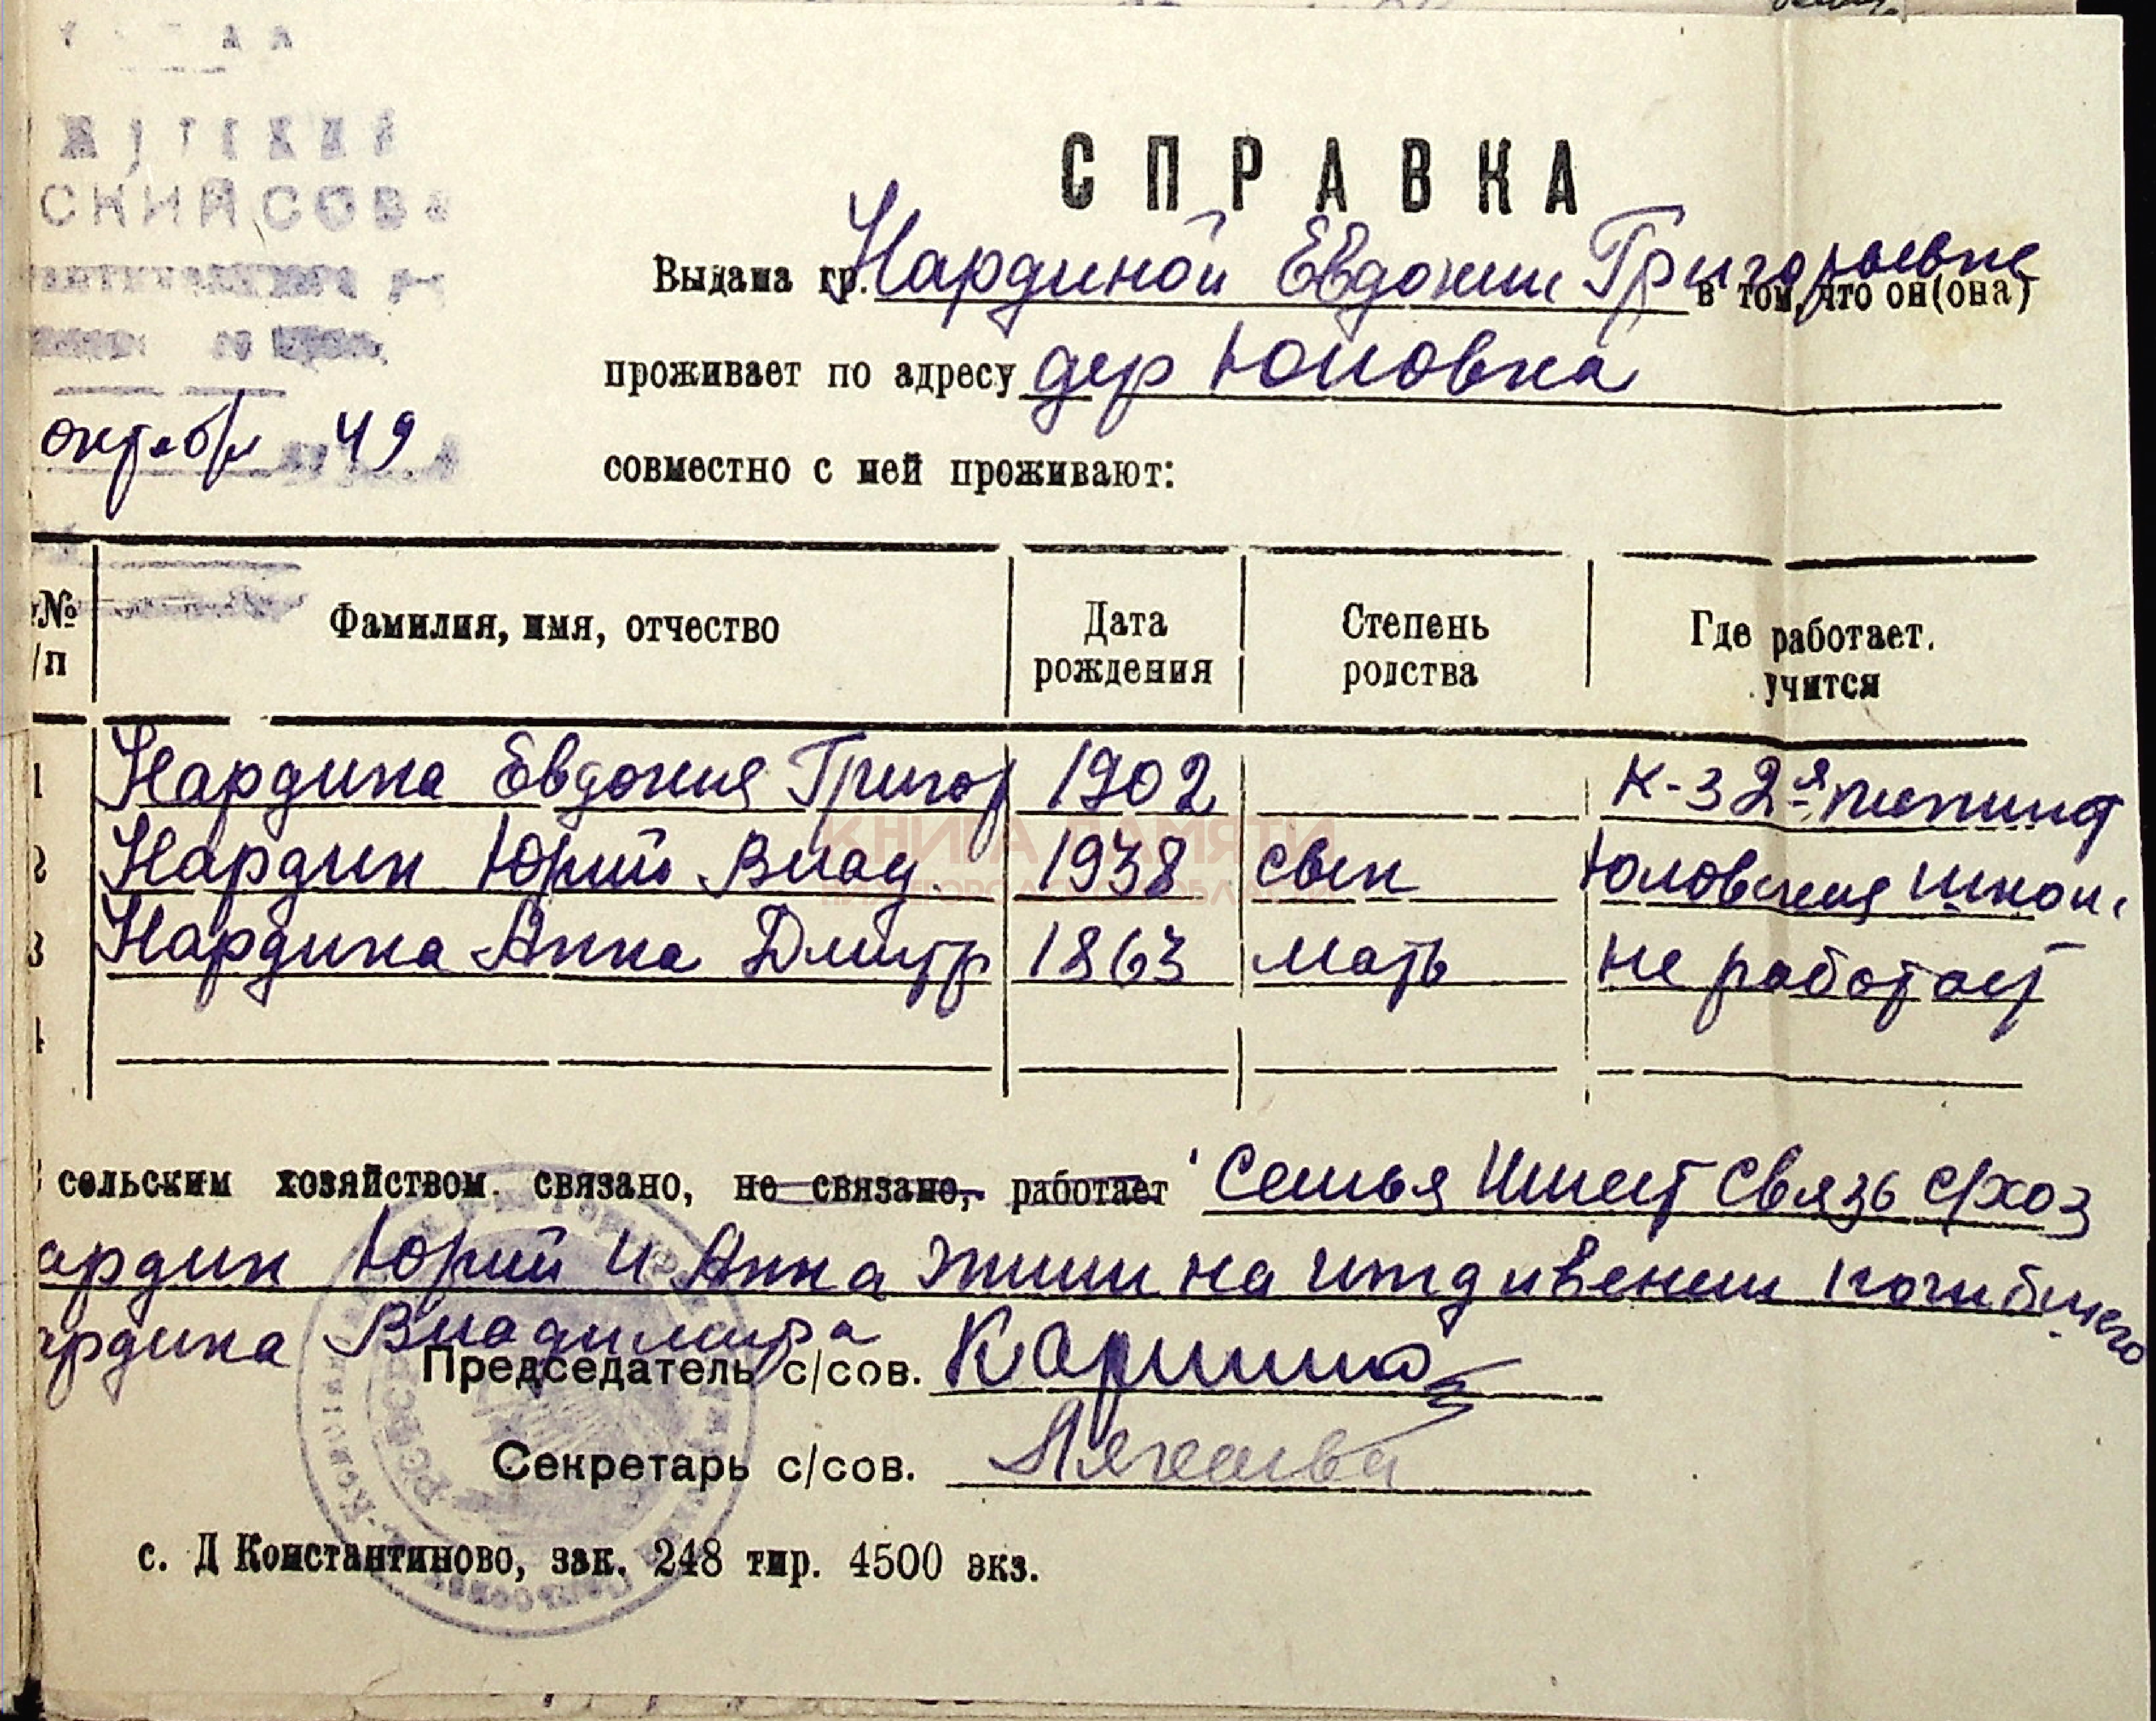 СКИЙ СОВЕ
октябр 49
СПРАВКА
Выдана гр. Нардиной Евдокии Григорьевне в том, что он(она)
проживает по адресу дер Юловка
совместно с ней проживают:
№ /п Фамилия, имя, отчество Дата рождения Степень родства Где работает. учится
1 Нардина Евдокия Григор 1902 к-з 2-я
2 Нардин Юрий Влад. 1938 сын Юловская школ.
3 Нардина Анна Дмитр 1863 мать не работает
4
КНИГА ПАМЯТИ
НИЖЕГОРОДСКОЙ ОБЛАСТИ
сельским хозяйством связано, не связано, работает Семья Имеет Связь с/хоз
ардин Юрий и Анна жили на иждивении погибшего
ардина Владимира
Председатель с/сов.
Секретарь с/сов.
РСФСР
с. Д Константиново, зак. 248 тир. 4500 экз.